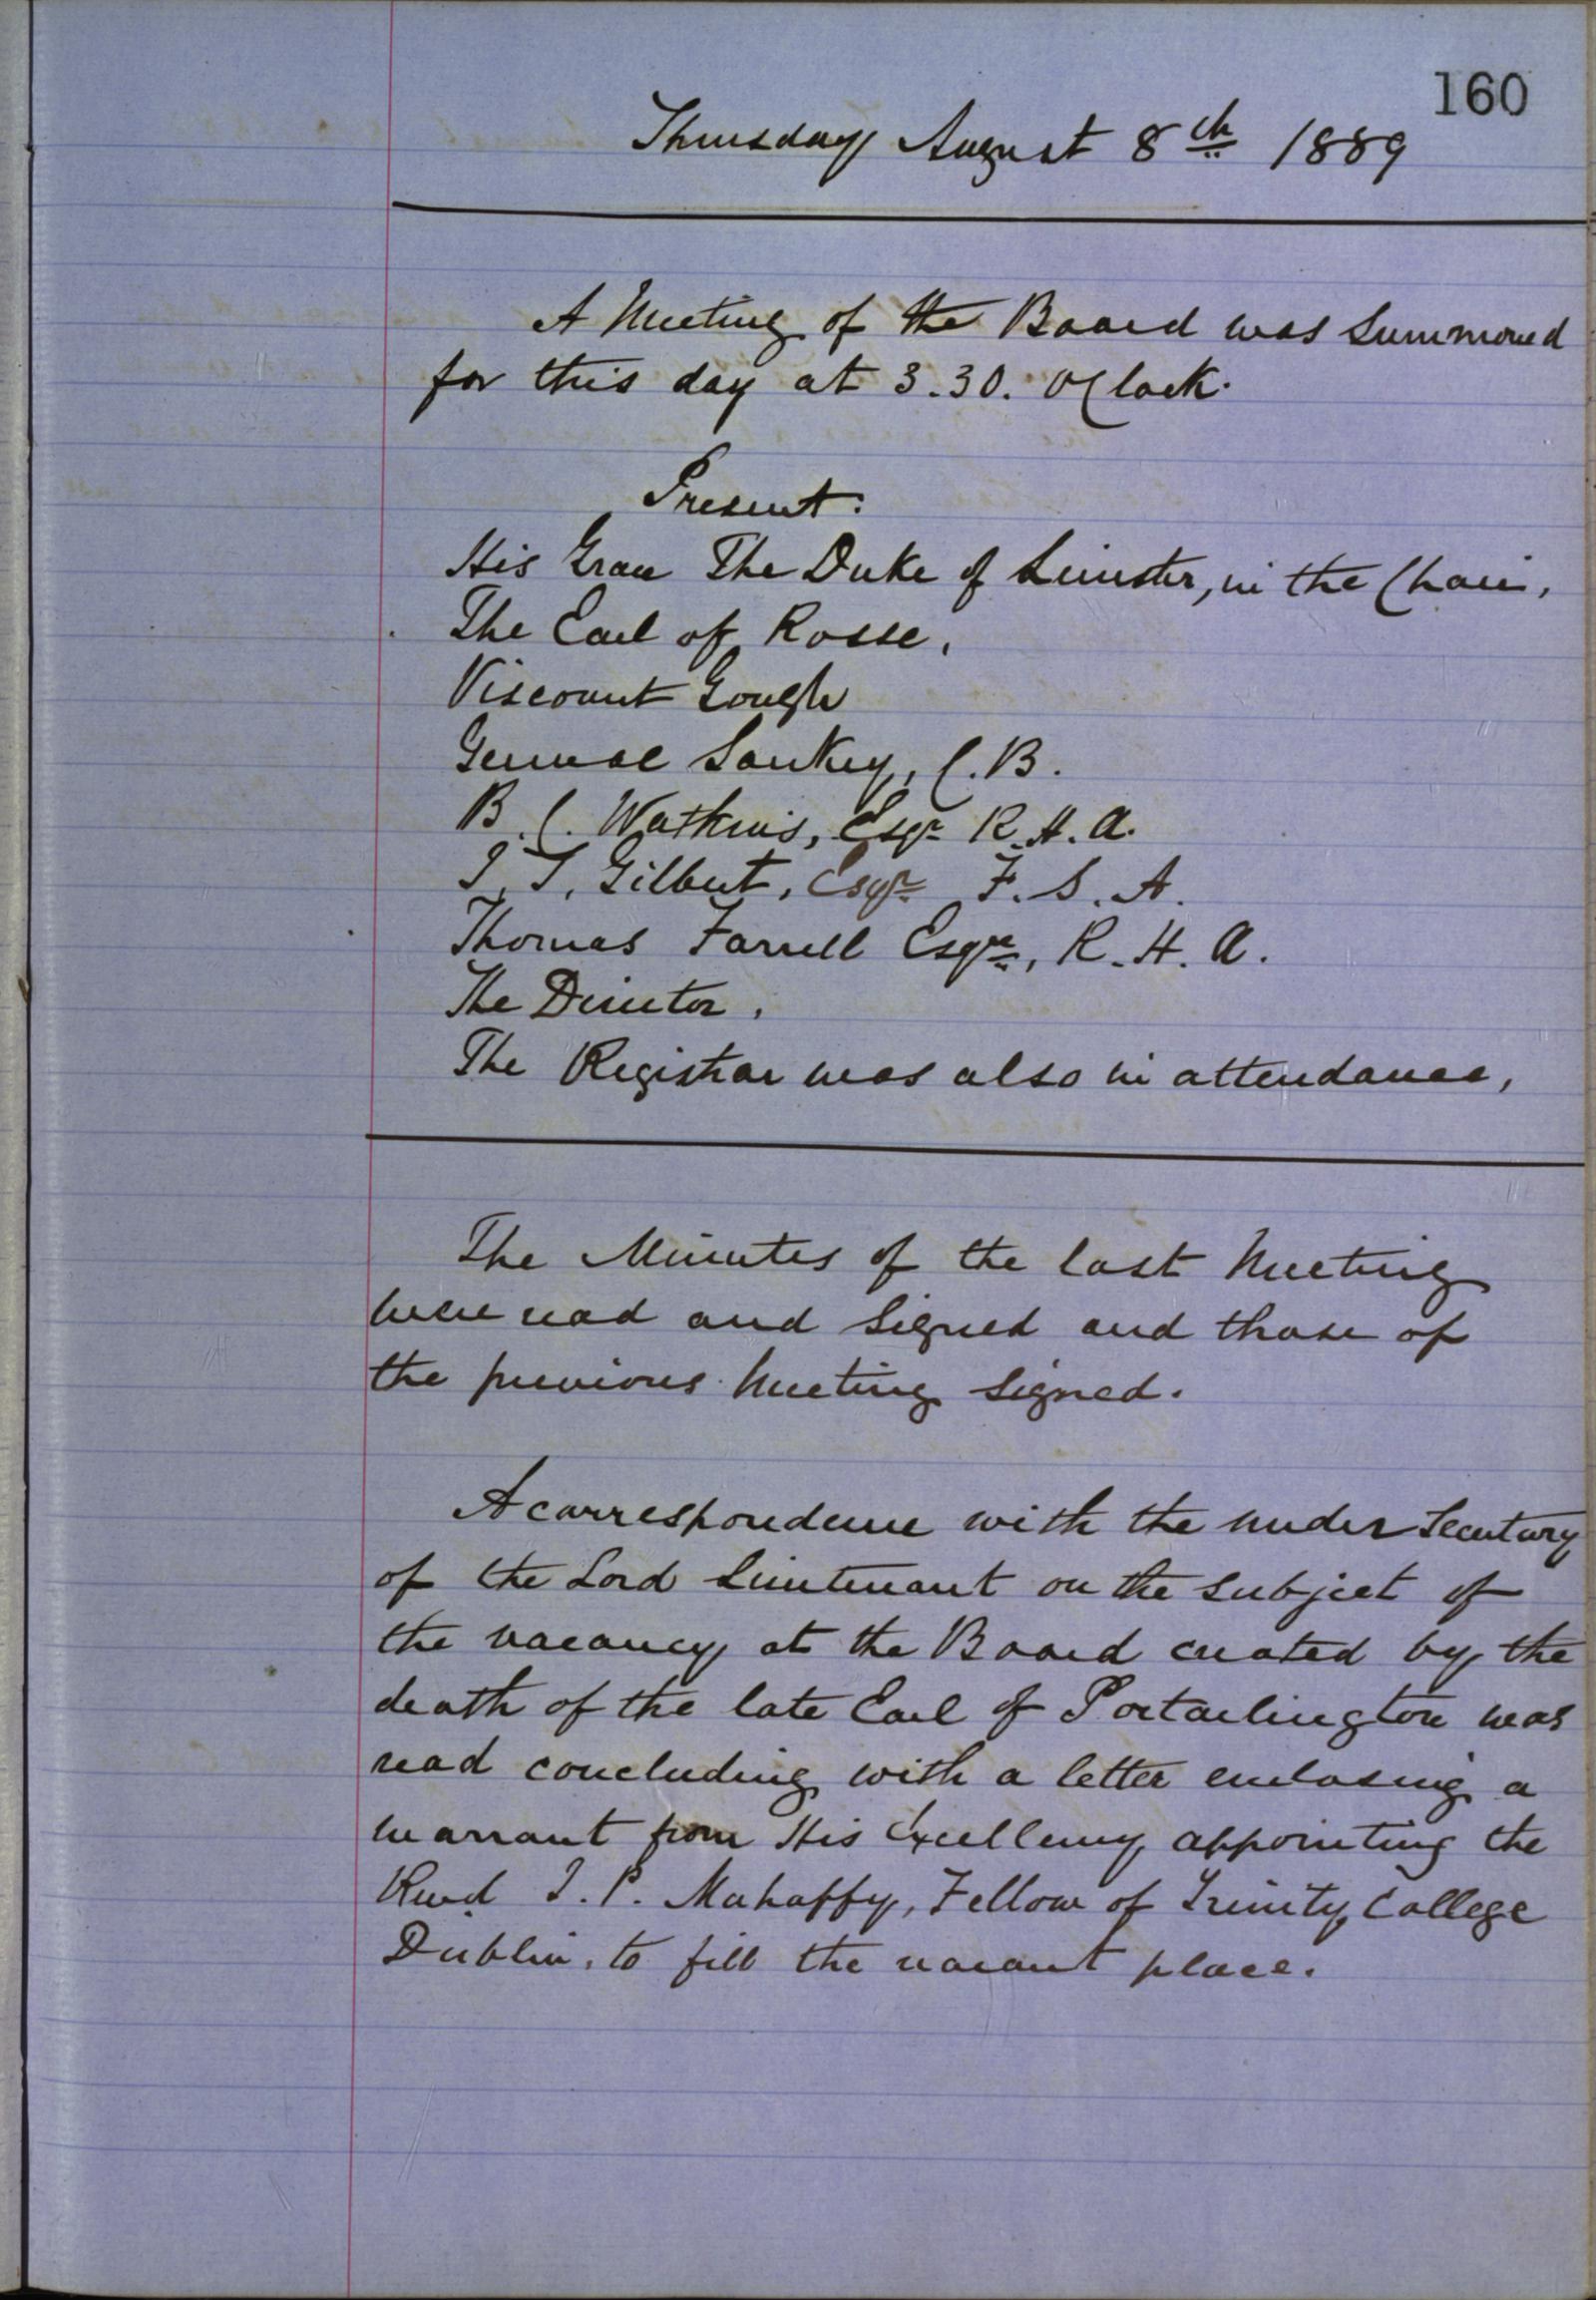 160
Thursday August 8th 1889
A Meeting of the Board was Summoned
for this day at 3.30. O'Clock.
Present:
His Grace The Duke of Leinster, in the Chair,
The Earl of Rosse.
Viscount Gough
General Sankey, C.B.
B. C. Watkins, Esqr. R.H.A.
J. T. Gilbert, Esqr. F.S.A.
Thomas Farrell Esqre, R.H.A.
The Director.
The Registrar was also in attendance,
The Minutes of the last Meeting
were read and signed and those of
the previous Meeting signed.
A correspondence with the under Secretary
of the Lord Lieutenant on the subject of
the vacancy at the Board created by the
death of the late Earl of Portarlington was
read concluding with a letter enclosing a
warrant from His Excellency appointing the
Revd J. P. Mahaffy, Fellow of Trinity College
Dublin, to fill the vacant place.